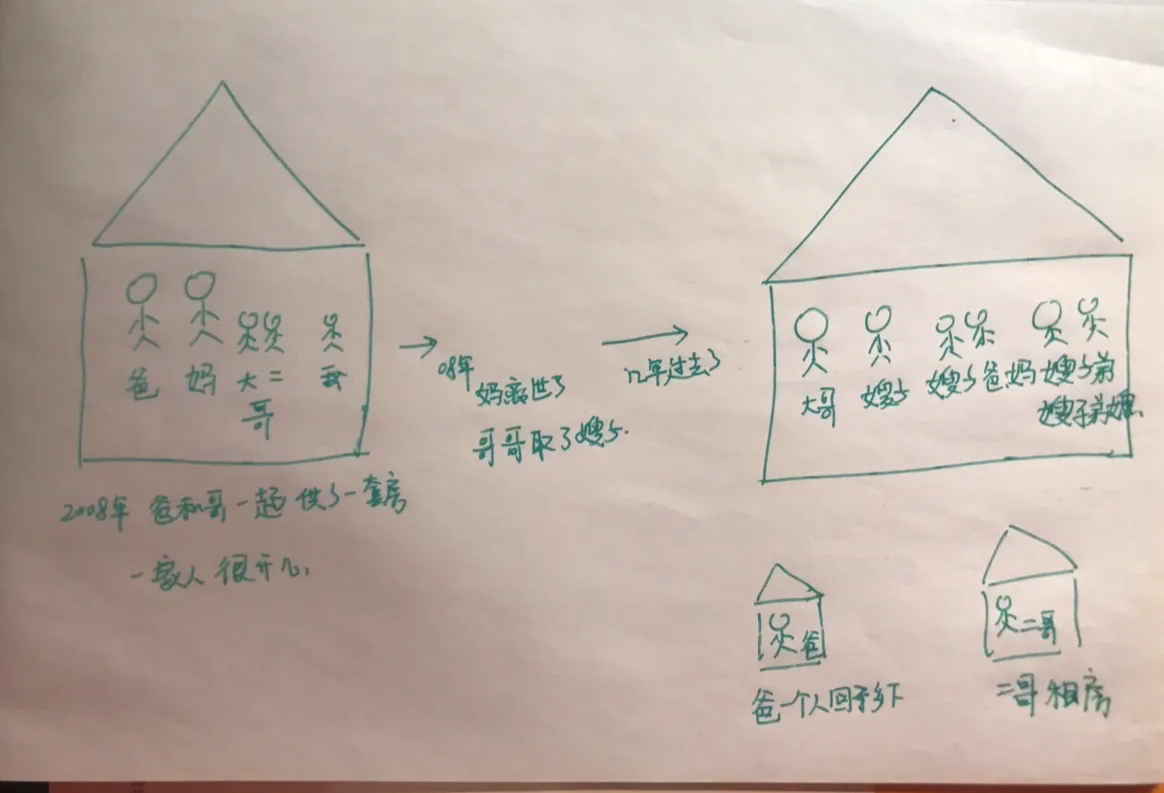 爸
妈
大二
哥
我
2008年 爸和哥一起供了一套房
一家人很开心.
08年
妈离世了
哥哥取了嫂子.
几年过去了
大哥
嫂子
嫂子爸妈
嫂子弟
嫂子弟媳
爸
爸一个人回了乡下
二哥
二哥租房